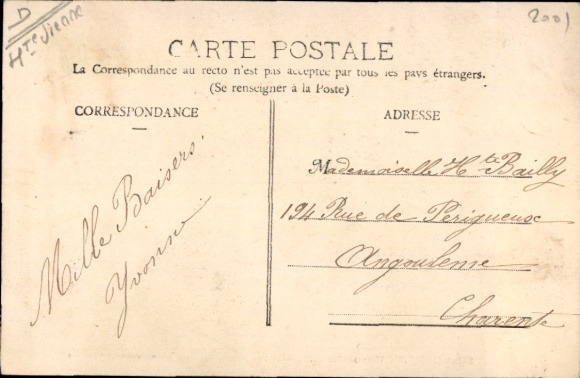 D
Hte Vienne
2001
CARTE POSTALE
La Correspondance au recto n'est pas acceptée par tous les pays étrangers.
(Se renseigner à la Poste)
CORRESPONDANCE
Mille Baisers.
Yvonne
ADRESSE
Mademoiselle Hte Bailly
194 Rue de Périgueux
Angouleme
Charente